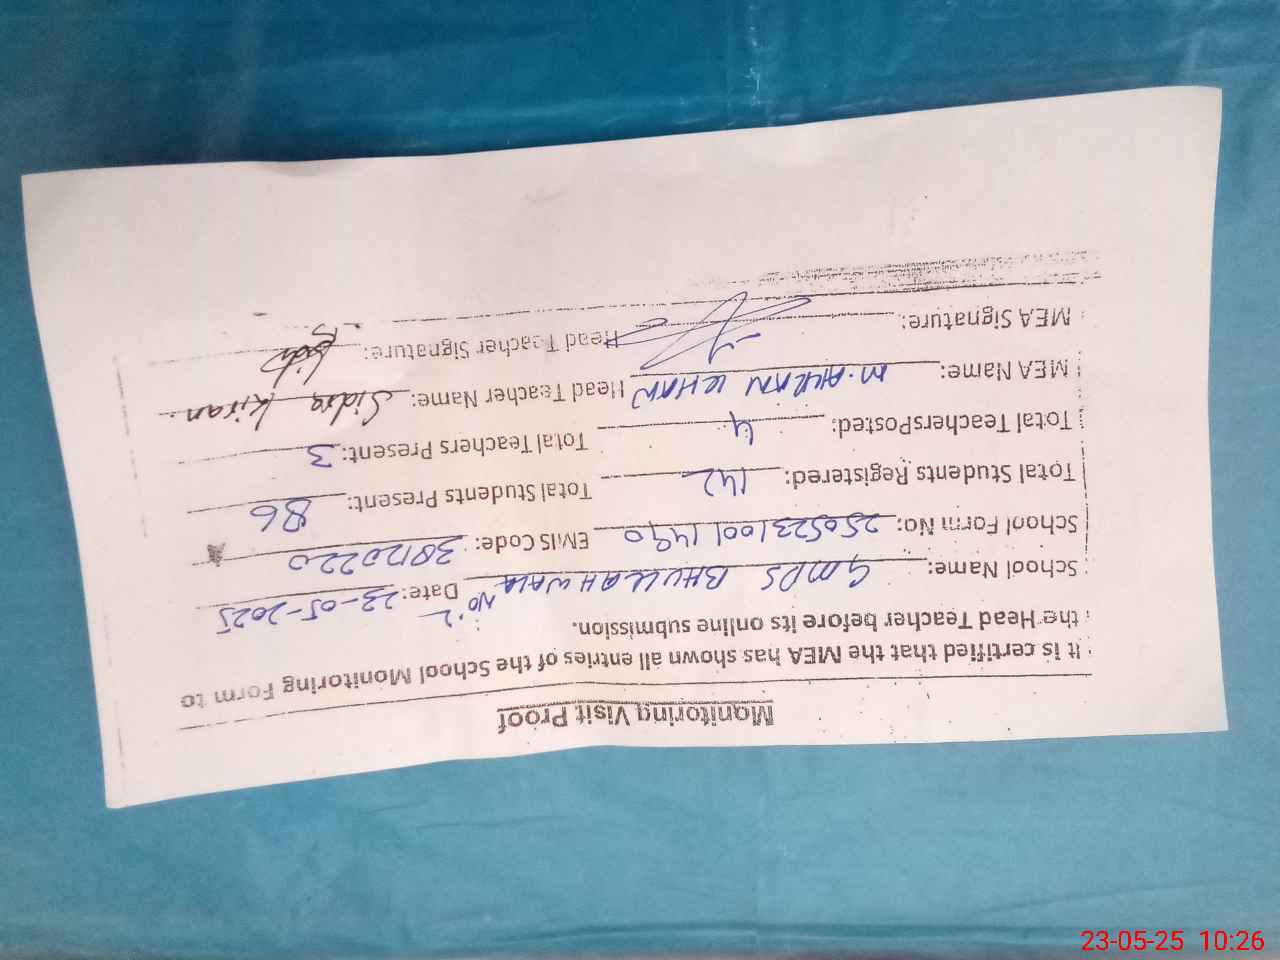 Monitoring Visit Proof
It is certified that the MEA has shown all entries of the School Monitoring Form to
the Head Teacher before its online submission.
School Name: GMPS BHULLAHWALA No. 2 Date: 23-05-2025
School Form No: 2505231001490 EMIS Code: 38120220
Total Students Registered: 142 Total Students Present: 86
Total TeachersPosted: 4 Total Teachers Present: 3
MEA Name: M. AHSAN KHAN Head Teacher Name: Sidra Kiran
MEA Signature: Head Teacher Signature:
23-05-25 10:26